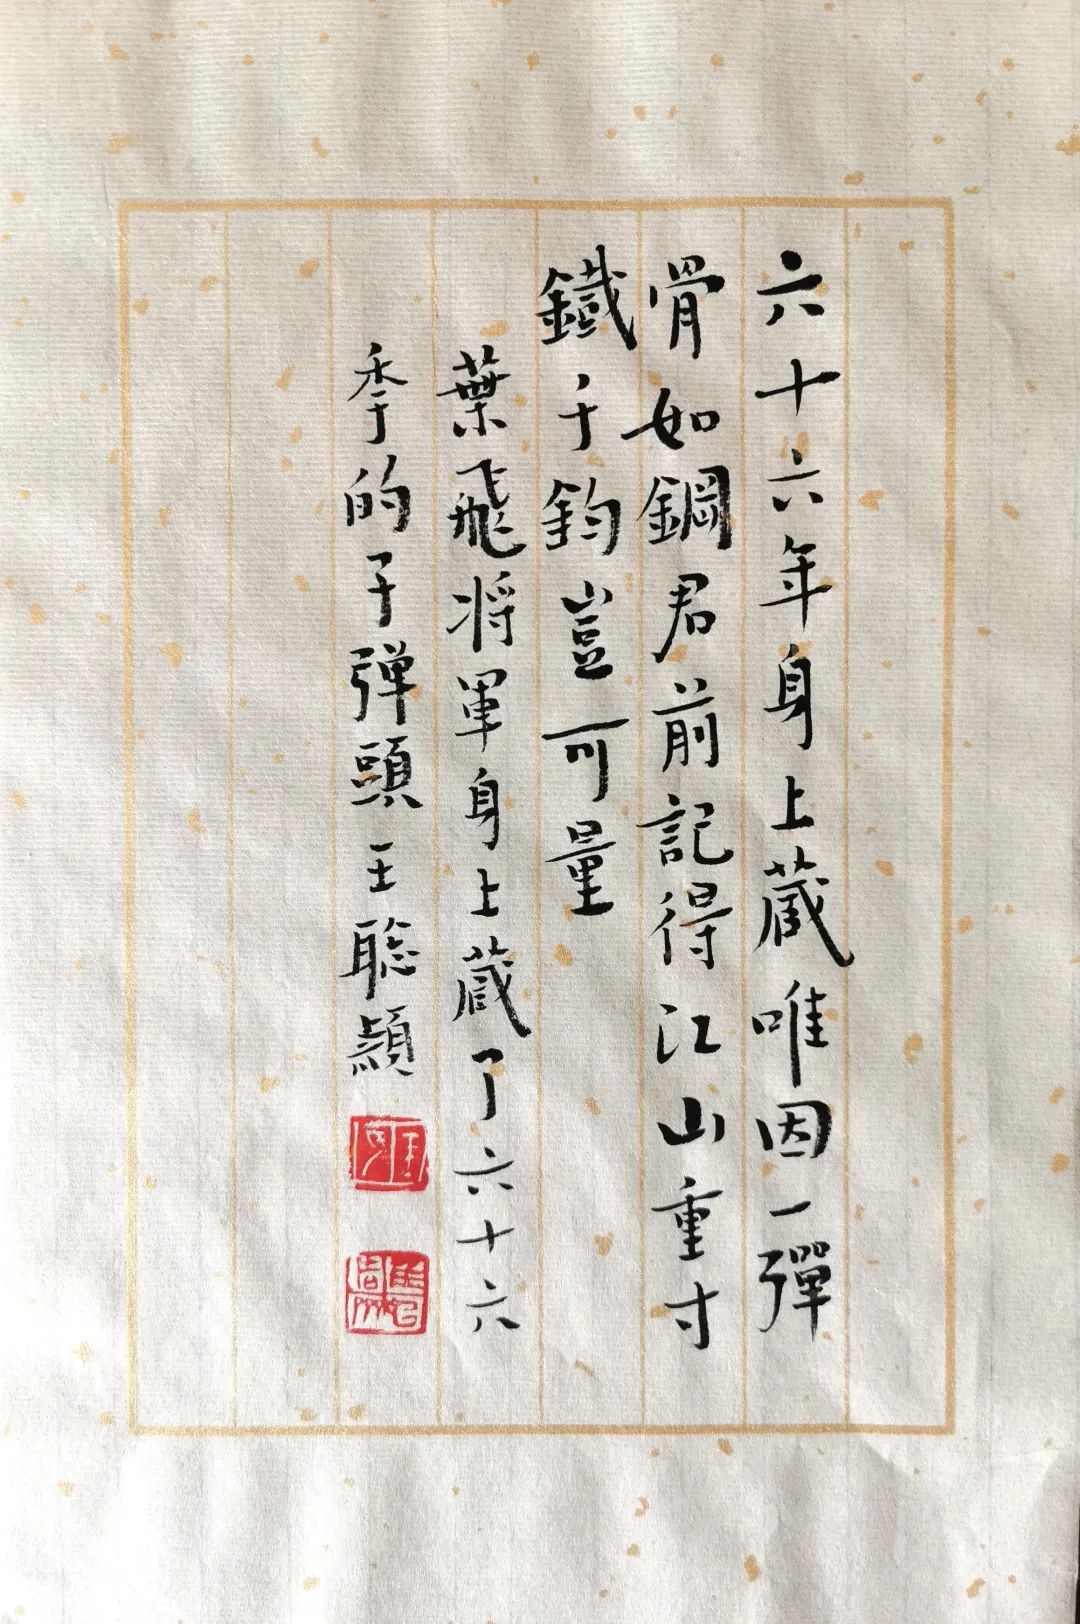 六十六年身上蔵唯因一彈
骨如鋼君前記得江山重寸
鐵千鈞豈可量
葉飛将軍身上蔵了六十六
季的子弹頭王聡穎